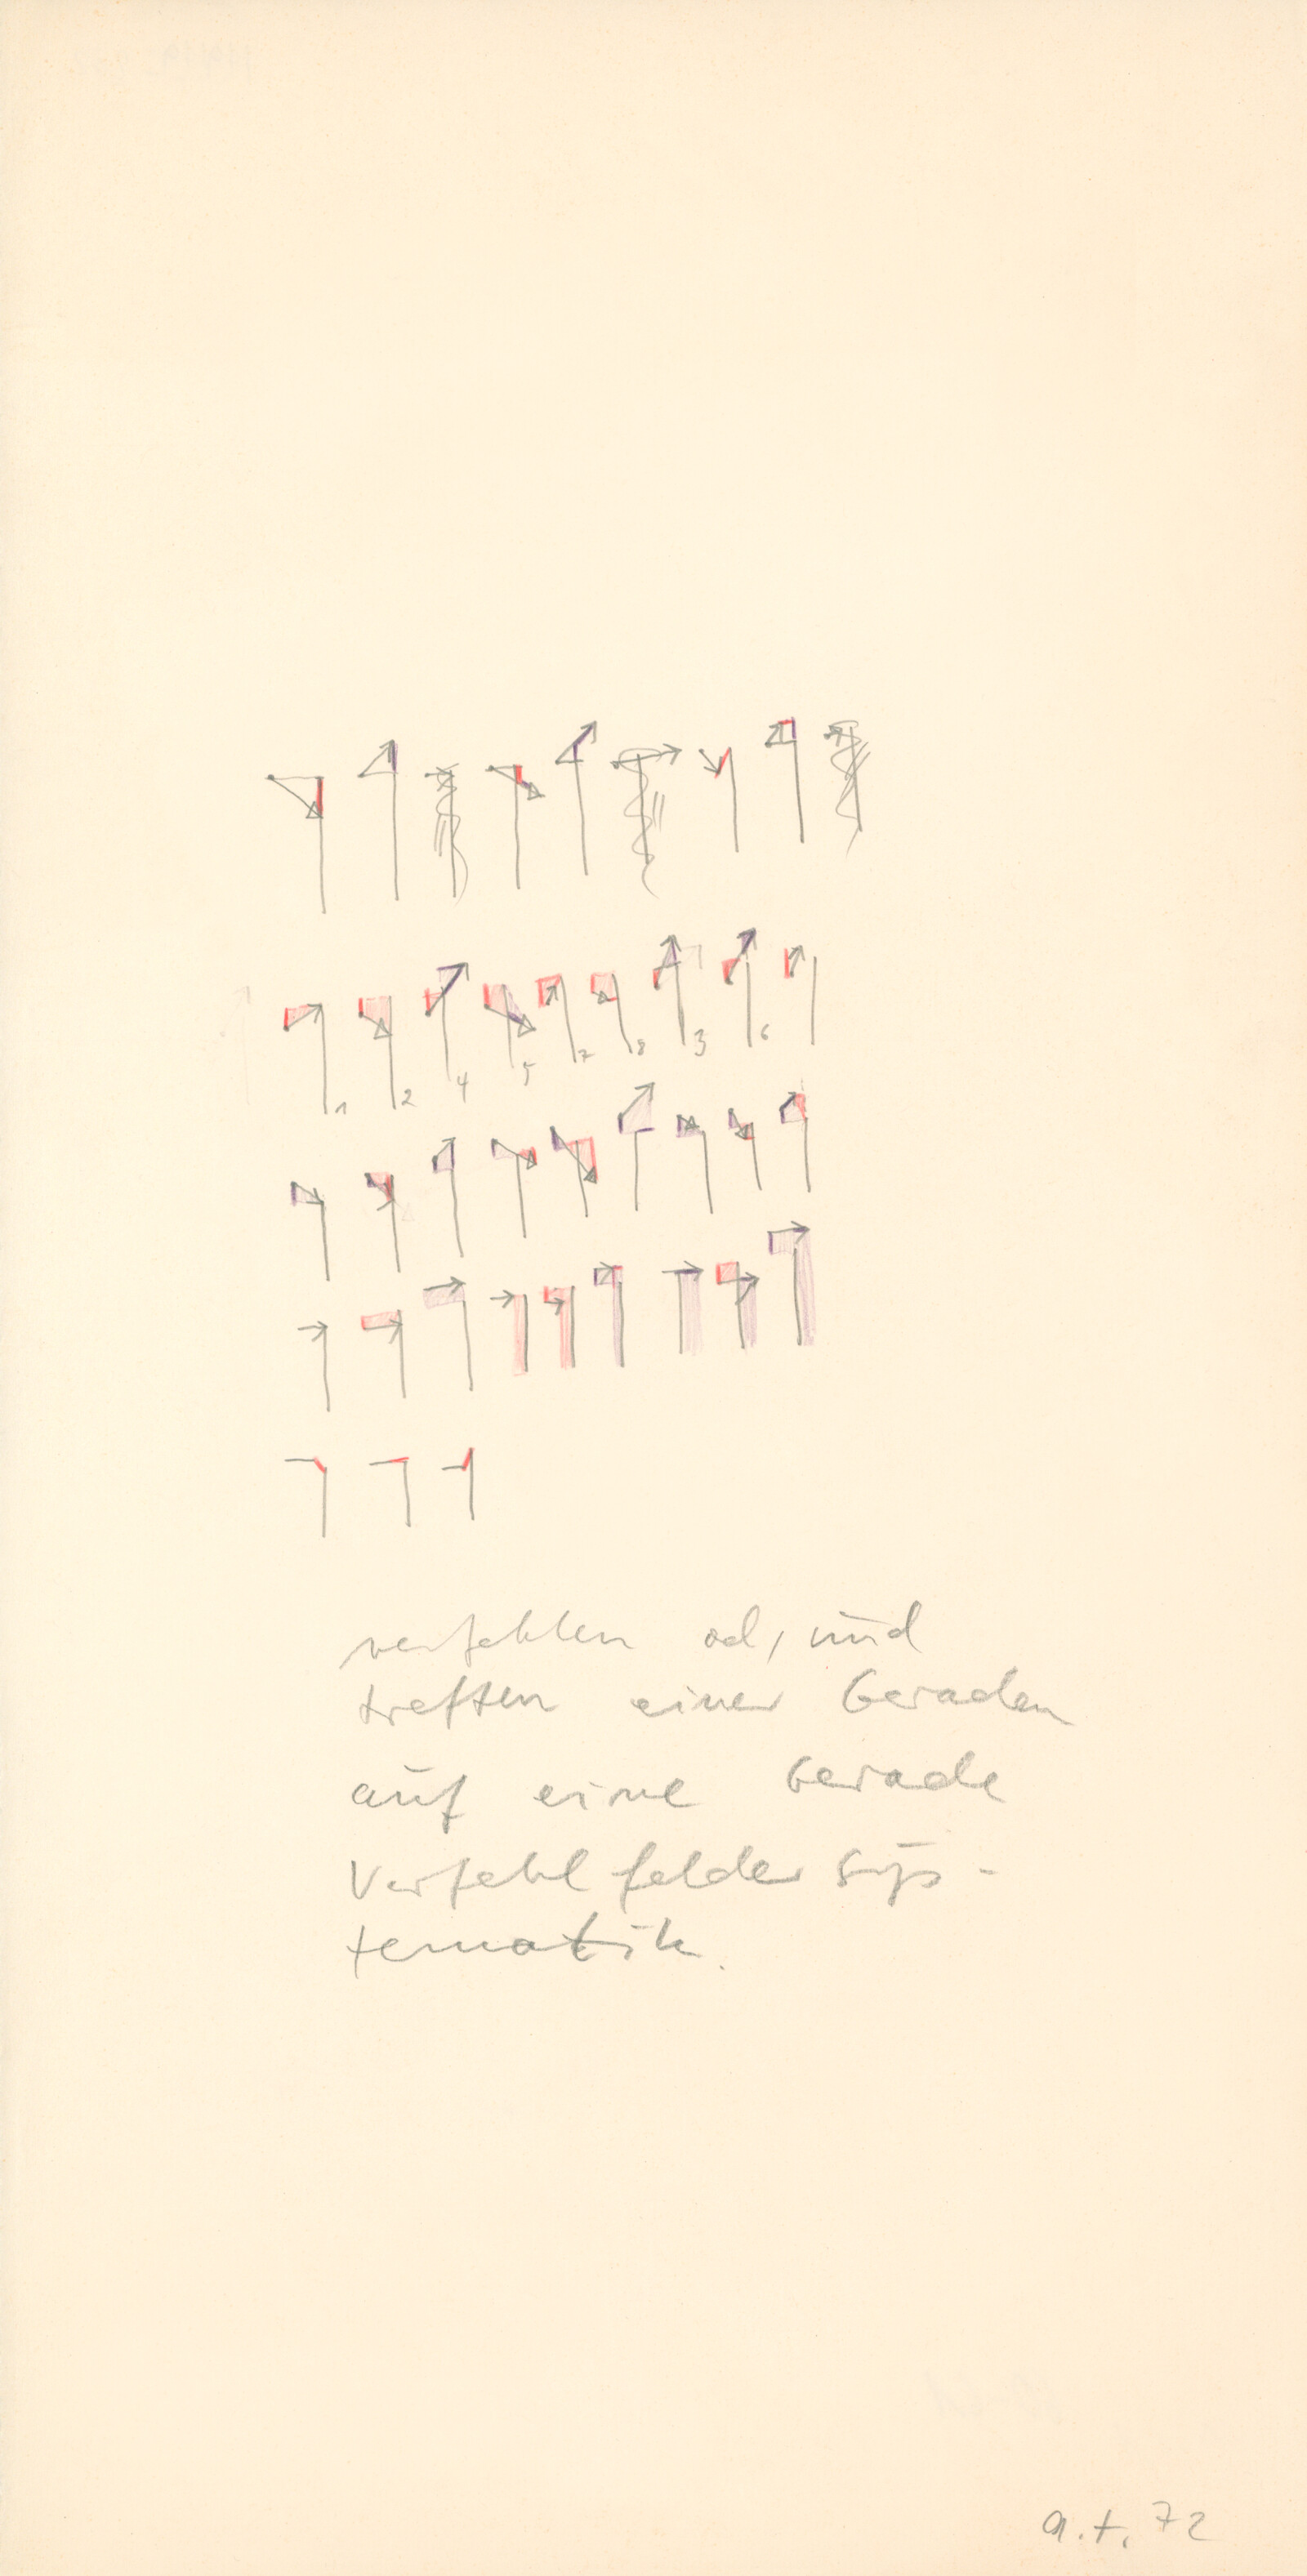 1 2 4 5 7 8 3 6
verfehlen od, und
treffen einer Geraden
auf eine Gerade
Verfehlfelder Sys-
tematik.
a.t. 72